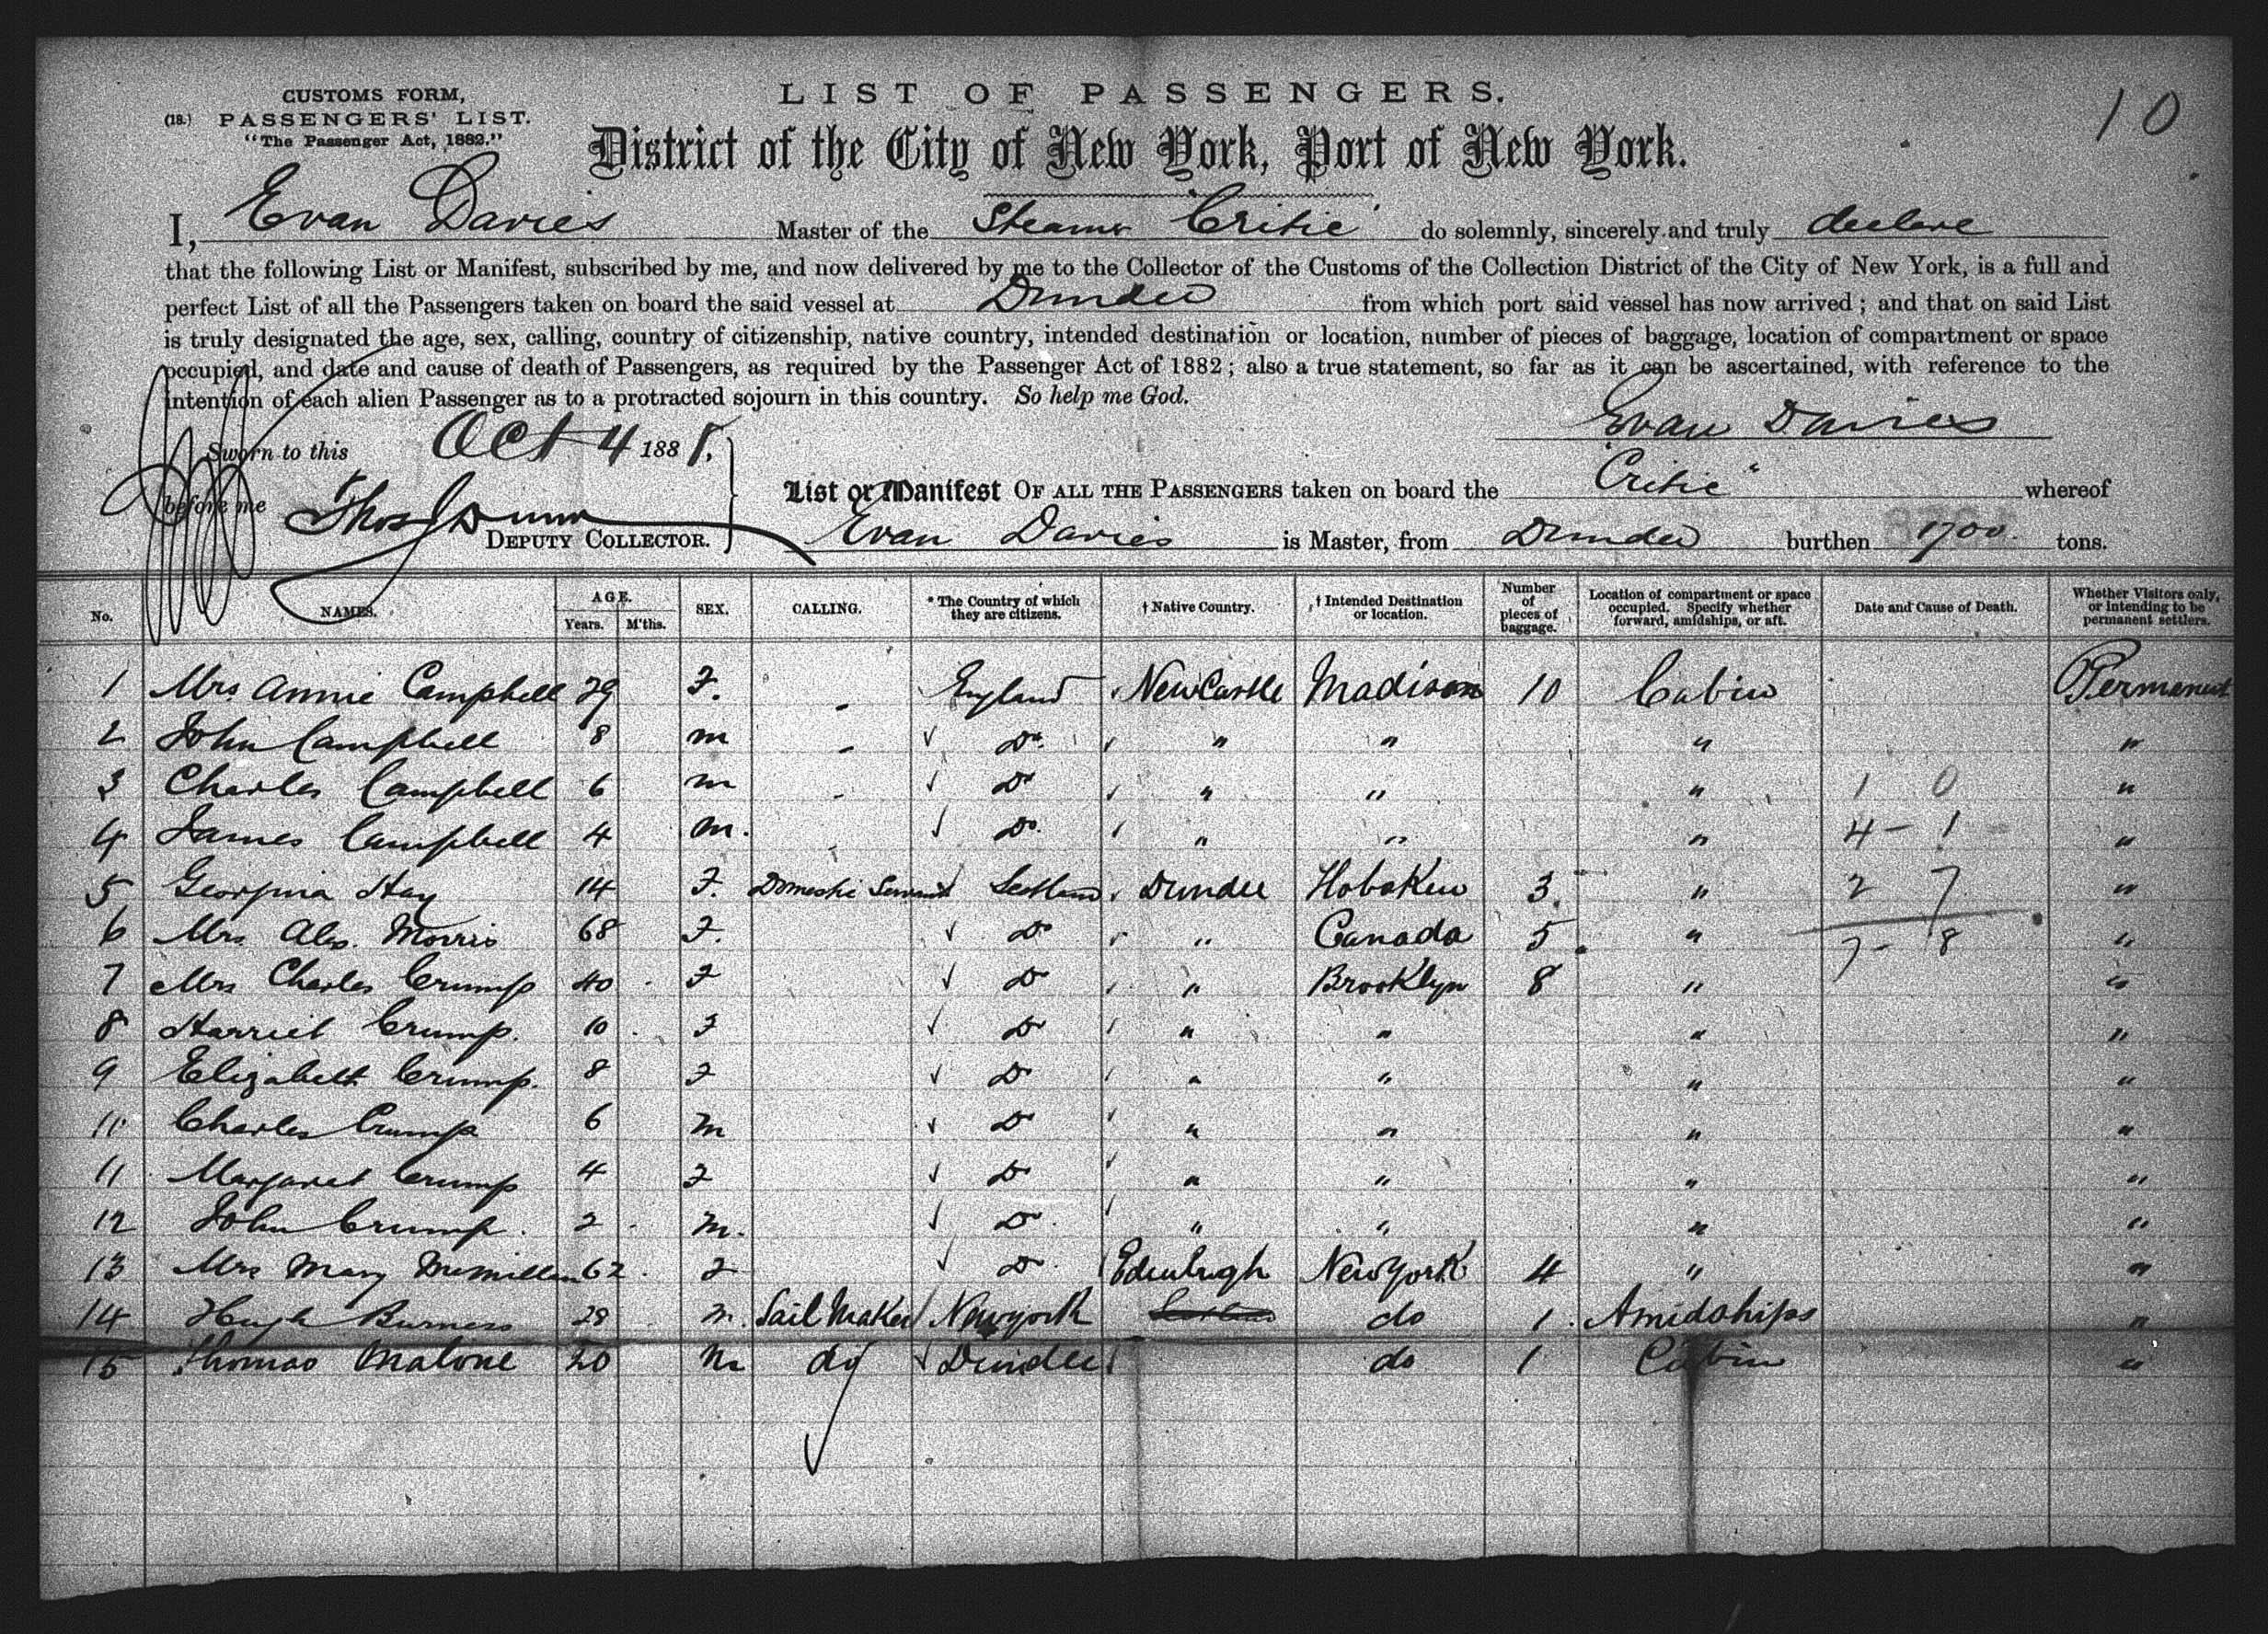 CUSTOMS FORM,
(18.) PASSENGERS' LIST.
"The Passenger Act, 1882."
LIST OF PASSENGERS.
10
District of the City of New York, Port of New York.
I, Evan Davies Master of the Steamer "Critic" do solemnly, sincerely and truly declare
that the following List or Manifest, subscribed by me, and now delivered by me to the Collector of the Customs of the Collection District of the City of New York, is a full and
perfect List of all the Passengers taken on board the said vessel at Dundee from which port said vessel has now arrived; and that on said List
is truly designated the age, sex, calling, country of citizenship, native country, intended destination or location, number of pieces of baggage, location of compartment or space
occupied, and date and cause of death of Passengers, as required by the Passenger Act of 1882; also a true statement, so far as it can be ascertained, with reference to the
intention of each alien Passenger as to a protracted sojourn in this country. So help me God.
Evan Davies
Sworn to this Oct 4 188
before me Thos Dunn
DEPUTY COLLECTOR.
List or Manifest OF ALL THE PASSENGERS taken on board the "Critic" whereof
Evan Davies is Master, from Dundee burthen 1700 tons.
No. NAMES. AGE. Years. M'ths. SEX. CALLING. * The Country of which they are citizens. † Native Country. † Intended Destination or location. Number of pieces of baggage. Location of compartment or space occupied. Specify whether forward, amidships, or aft. Date and Cause of Death. Whether Visitors only, or intending to be permanent settlers.
1 Mrs Annie Campbell 29 F. - England Newcastle Madison 10 Cabin Permanent
2 John Campbell 8 m - Do " " " "
3 Charles Campbell 6 m - Do " " " 1 0 "
4 James Campbell 4 m. - Do " " " 4 - 1 "
5 Georgina Hay 14 F. Domestic Servant Scotland Dundee Hoboken 3 " 2 7 "
6 Mrs Alex. Morris 68 F. Do " Canada 5 " 7 - 8 "
7 Mrs Charles Crump 40 F Do " Brooklyn 8 " "
8 Harriet Crump. 10 F Do " " " "
9 Elizabeth Crump. 8 F Do " " " "
11 Charles Crump 6 m Do " " " "
11 Margaret Crump 4 F Do " " " "
12 John Crump. 2 m. Do " " " "
13 Mrs Mary McMillan 62 F Do Edinburgh New York 4 " "
14 Hugh Burness 28 m. Sail Maker New york do 1 Amidships "
15 Thomas Malone 20 m do Dundee do 1 Cabin "